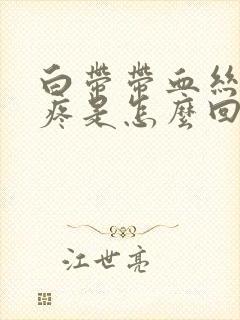 白帶帶血絲
疼是怎麼回
江世亮